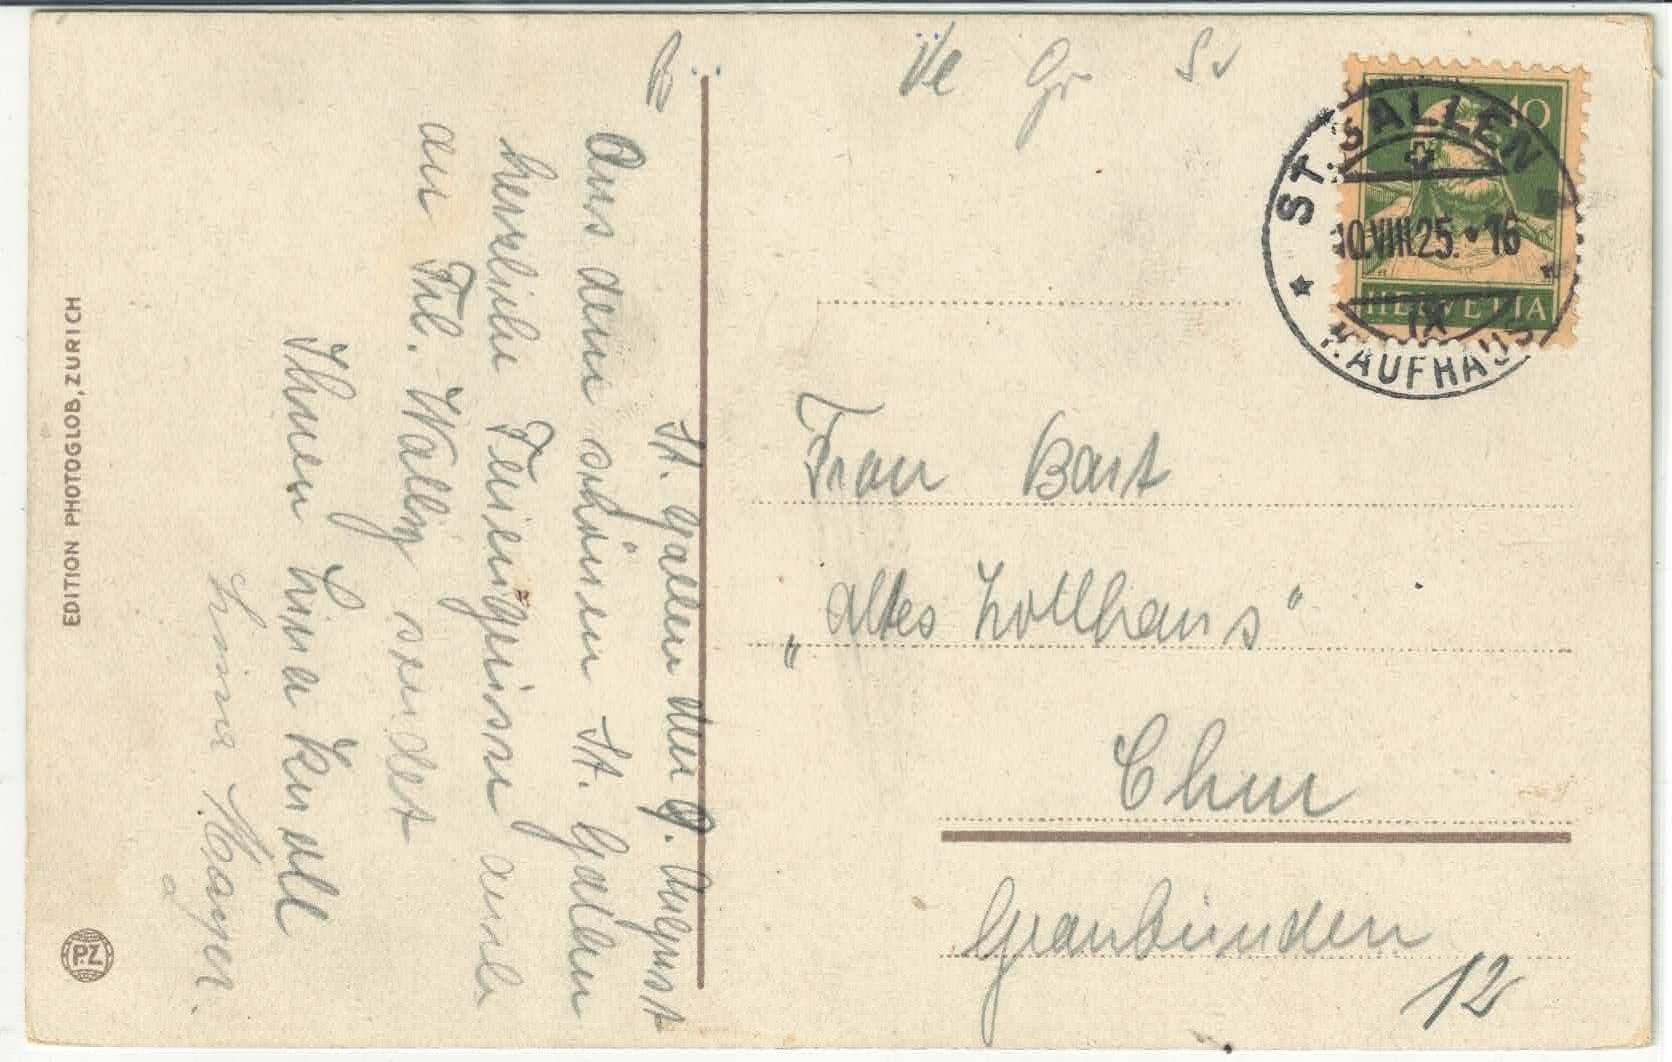 St. Gallen den 9. August
Aus dem schönen St. Gallen
herzliche Feriengrüsse auch
an Frl. Wally sendet
Ihnen Lina Kendl
Lina Mayer.
EDITION PHOTOGLOB, ZURICH
P.Z
Ve Gr Sv
10
ST. GALLEN
10.VIII.25. 16
IX
KAUFHAUS
HELVETIA
Frau Bart
„altes Zollhaus"
Chur
Graubünden
12